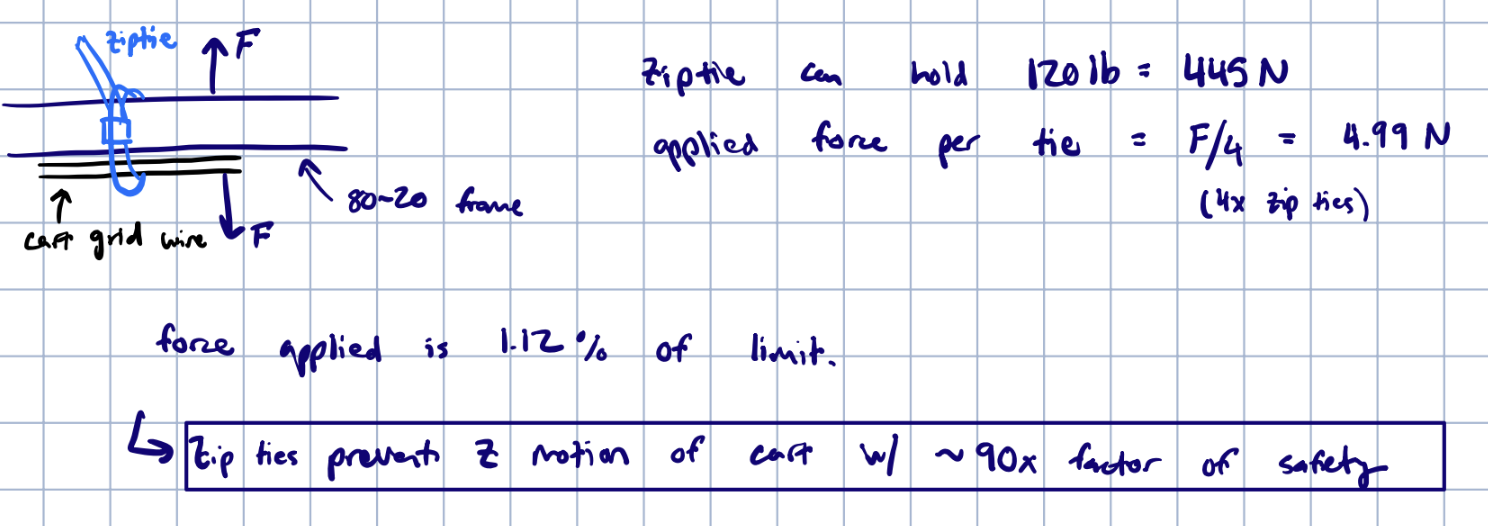 ziptie
F
80-20 frame
cart grid wire
F
Ziptie can hold 120 lb = 445 N
applied force per tie = F/4 = 4.99 N
(4x zip ties)
force applied is 1.12 % of limit.
Zip ties prevent Z motion of cart w/ ~90x factor of safety